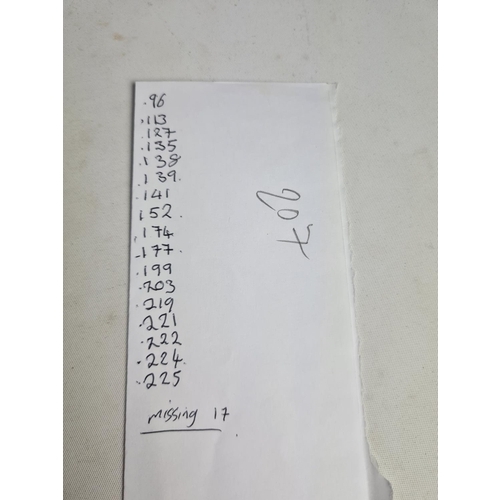 .96
.113
.127
.135
.138
.139.
.141
.152.
.174
.177.
.199
.203
.219
.221
.222
.224.
.225
missing 17